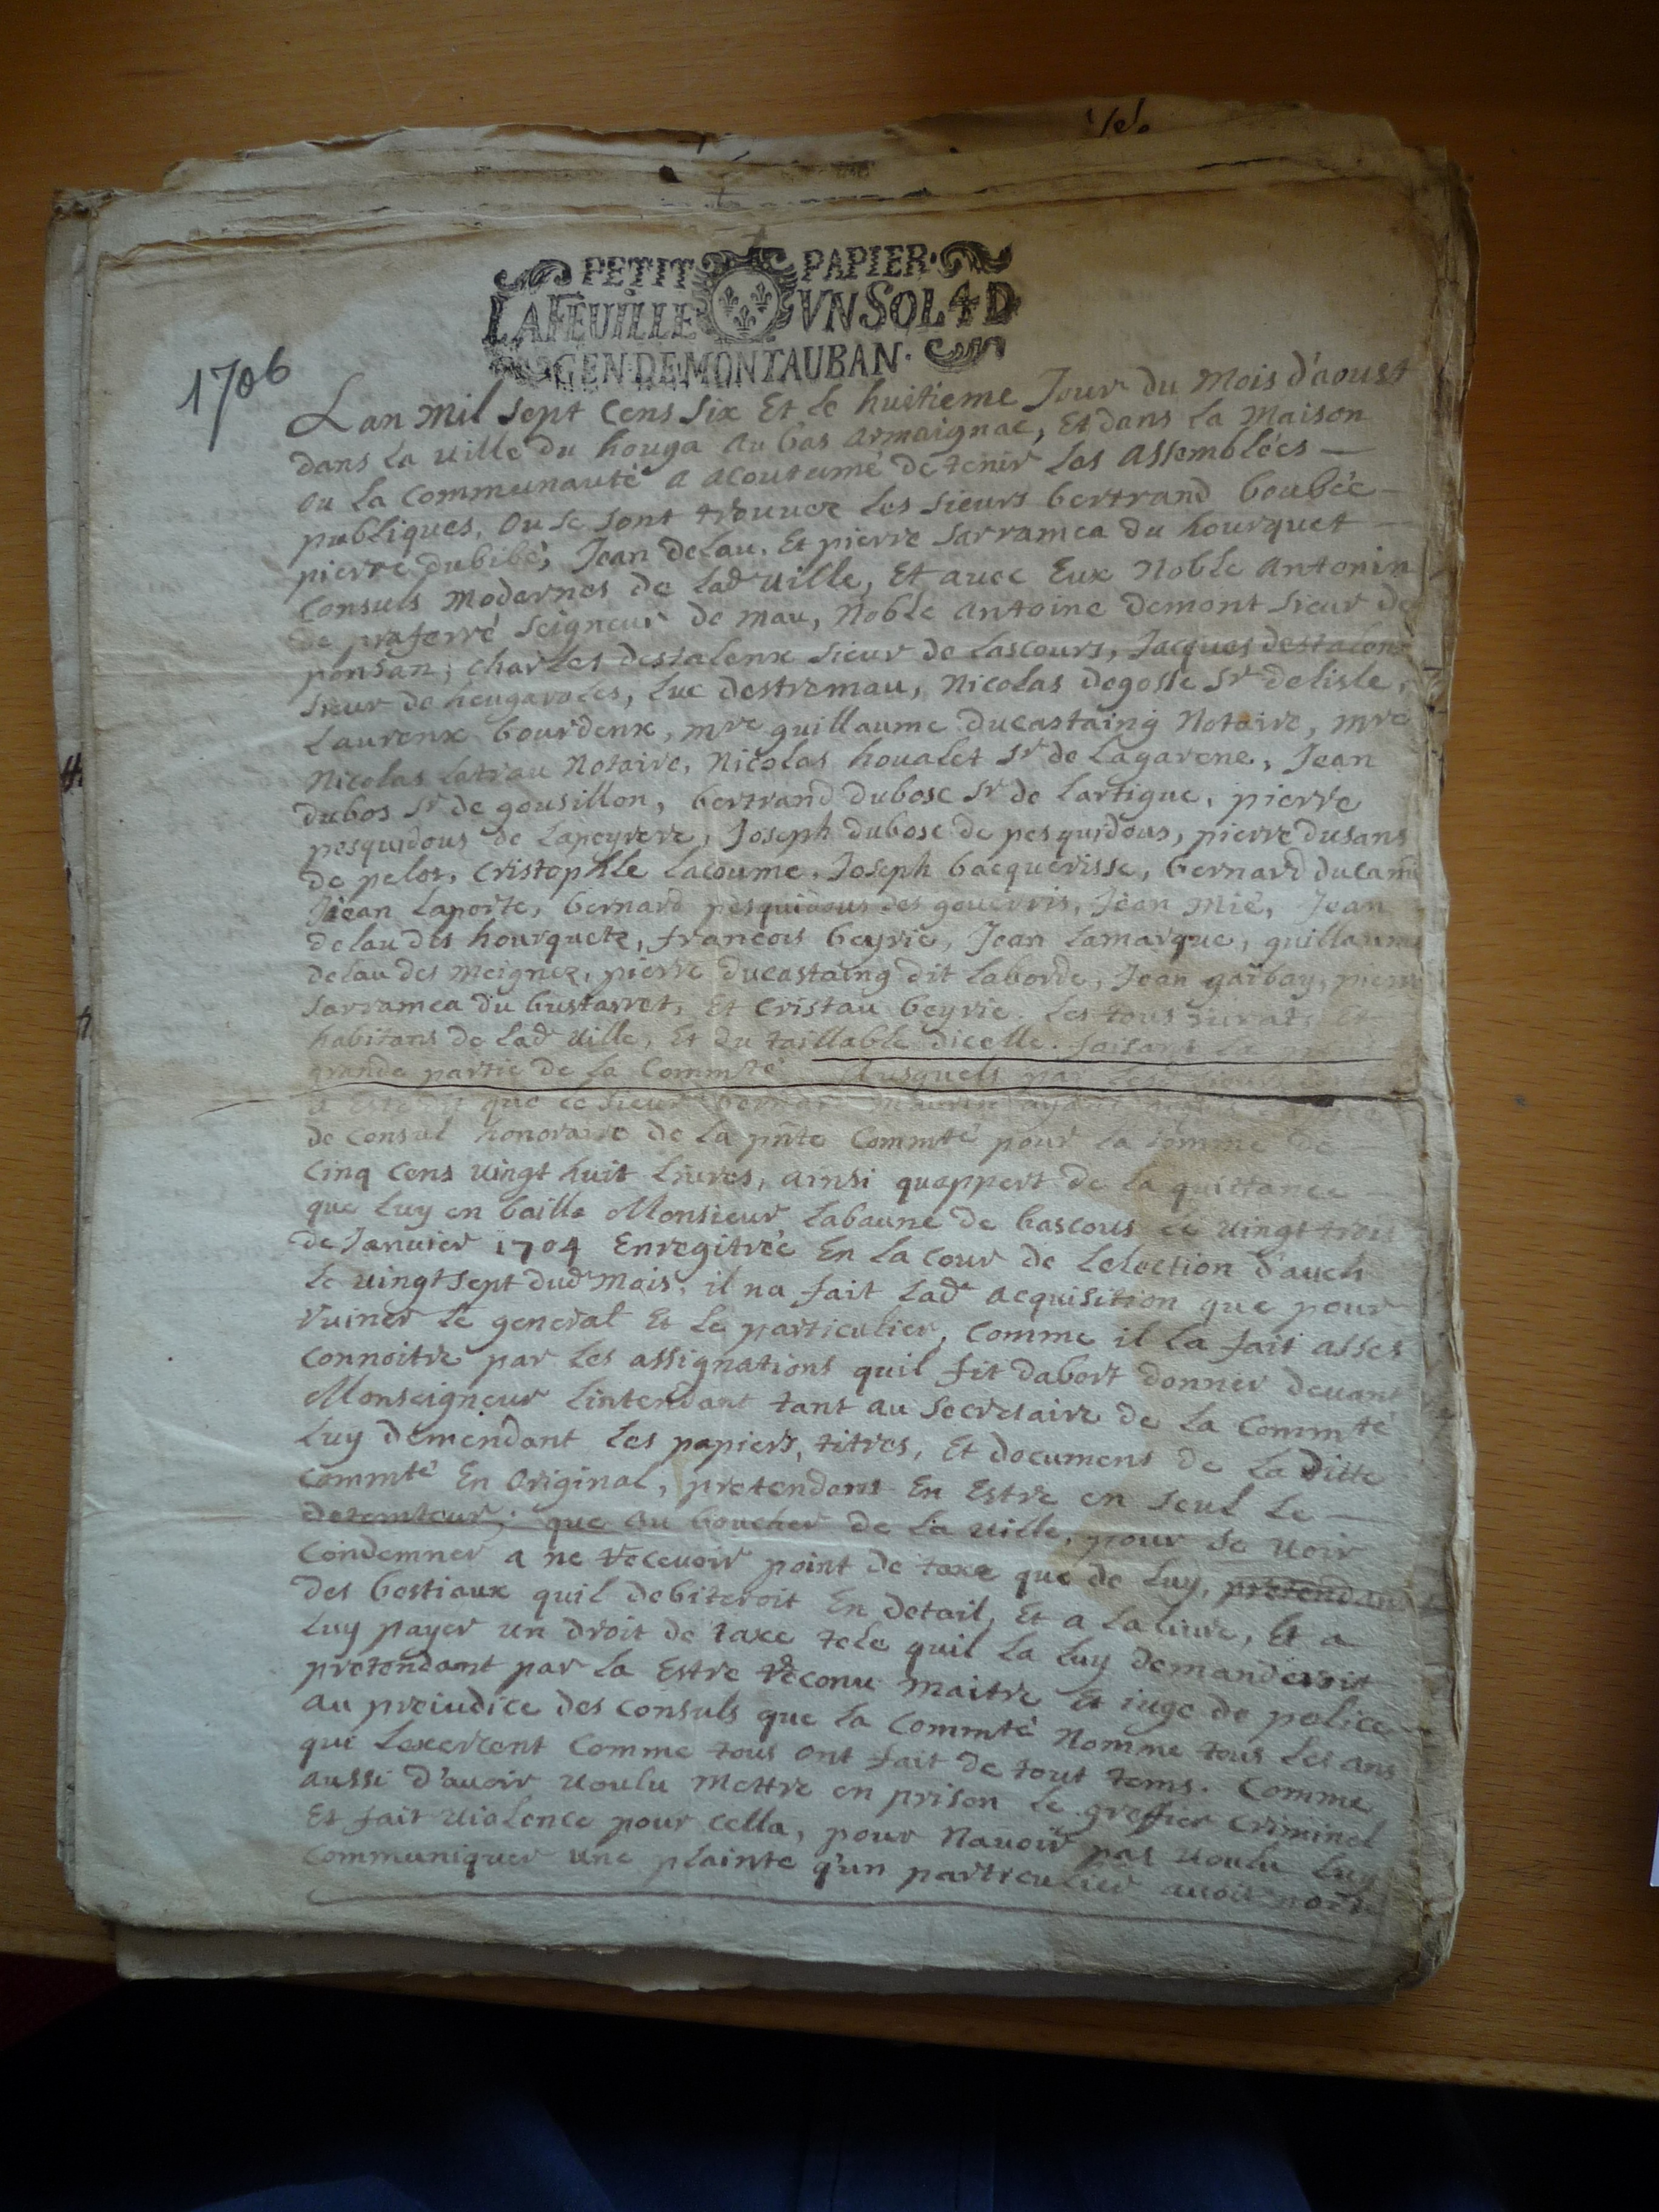 PETIT PAPIER.
LA FEUILLE VN SOL 4 D
GEN. DE MONTAUBAN.
1706
Lan mil sept cens six Et le huitieme Jour du Mois d'aoust
dans la ville du houga au bas armaignac, Et dans la Maison
ou la Communauté a acoutumé de tenir les assemblées
publiques, ou se sont trouuer les sieurs bertrand boubée
pierre dubibé, Jean delau, Et pierre sarramea du hourquet
Consuls Modernes de lad ville, Et auec Eux Noble antonin
de praferré seigneur de mau, Noble antoine demont sieur de
ponsan, Charles destalenx sieur de lascours, Jacques destalenx
sieur de heugaroles, luc destremau, Nicolas degosse sr delisle,
laurenx bourdenx, mre guillaume ducastaing Notaire, mre
Nicolas latrau Notaire, Nicolas houalet sr de lagarene, Jean
dubos sr de gousillon, bertrand dubosc sr de lartigue, pierre
pesquidous de lapeyrere, Joseph dubosc de pesquidous, pierre dusans
de pelos, Cristophle lacoume, Joseph bacquerisse, bernard
Jean laporte, bernard pesquidous des gouerris, Jean Mié, Jean
delau des hourquetz, francois beyrie, Jean lamarque, guillaume
delau des Meignez, pierre ducastaing dit laborde, Jean garbay, pierre
sarramea du bustarret, Et Cristau beyrie. les tous Jurats Et
habitans de lad ville, Et du taillable dicelle. faisant la
grande partie de la Commté Ausquels par
a esté dit que le sieur
de Consul honoraire de la pñte Commté pour la somme de
Cinq Cens vingt huit liures, ainsi quappert de la quittance
que luy en baille Monsieur labaune de bascous le vingt trois
de Januier 1704 Enregitrée En la Cour de Lelection d'auch
le vingt sept dud Mois, il na fait lad acquisition que pour
ruiner le general Et le particulier, Comme il la fait asses
connoitre par les assignations quil fit dabort donner deuant
Monseigneur lintendant tant au secretaire de la Commté
luy demendant les papiers, titres, Et documens de la ditte
Commté En Original, pretendant En Estre en seul le
detemteur; que au boucher de la ville, pour se voir
Condemner a ne receuoir point de taxe que de luy, pretendant
des bestiaux quil debiteroit En detail, Et a la liure, Et a
luy payer un droit de taxe tele quil la luy demanderoit
pretendant par la Estre reconu maitre Et iuge de police
au preiudice des Consuls que la Commté Nomme tous les ans
qui lexercent Comme tous ont fait de tout tems. Comme
aussi d'auoir voulu Mettre en prison le greffier Criminel
Et fait violence pour cella, pour Nauoir pas voulu luy
Communiquer une plainte q'un particulier auoit